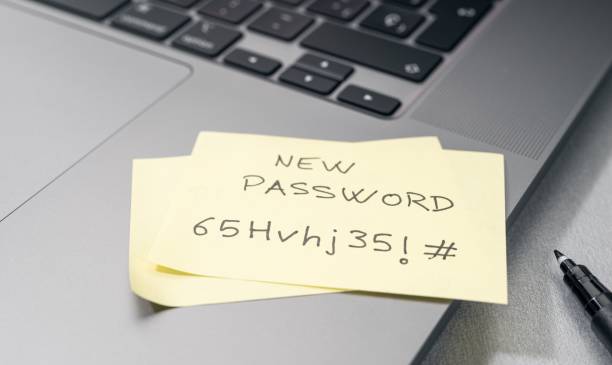 NEW
PASSWORD
65Hvhj35!#